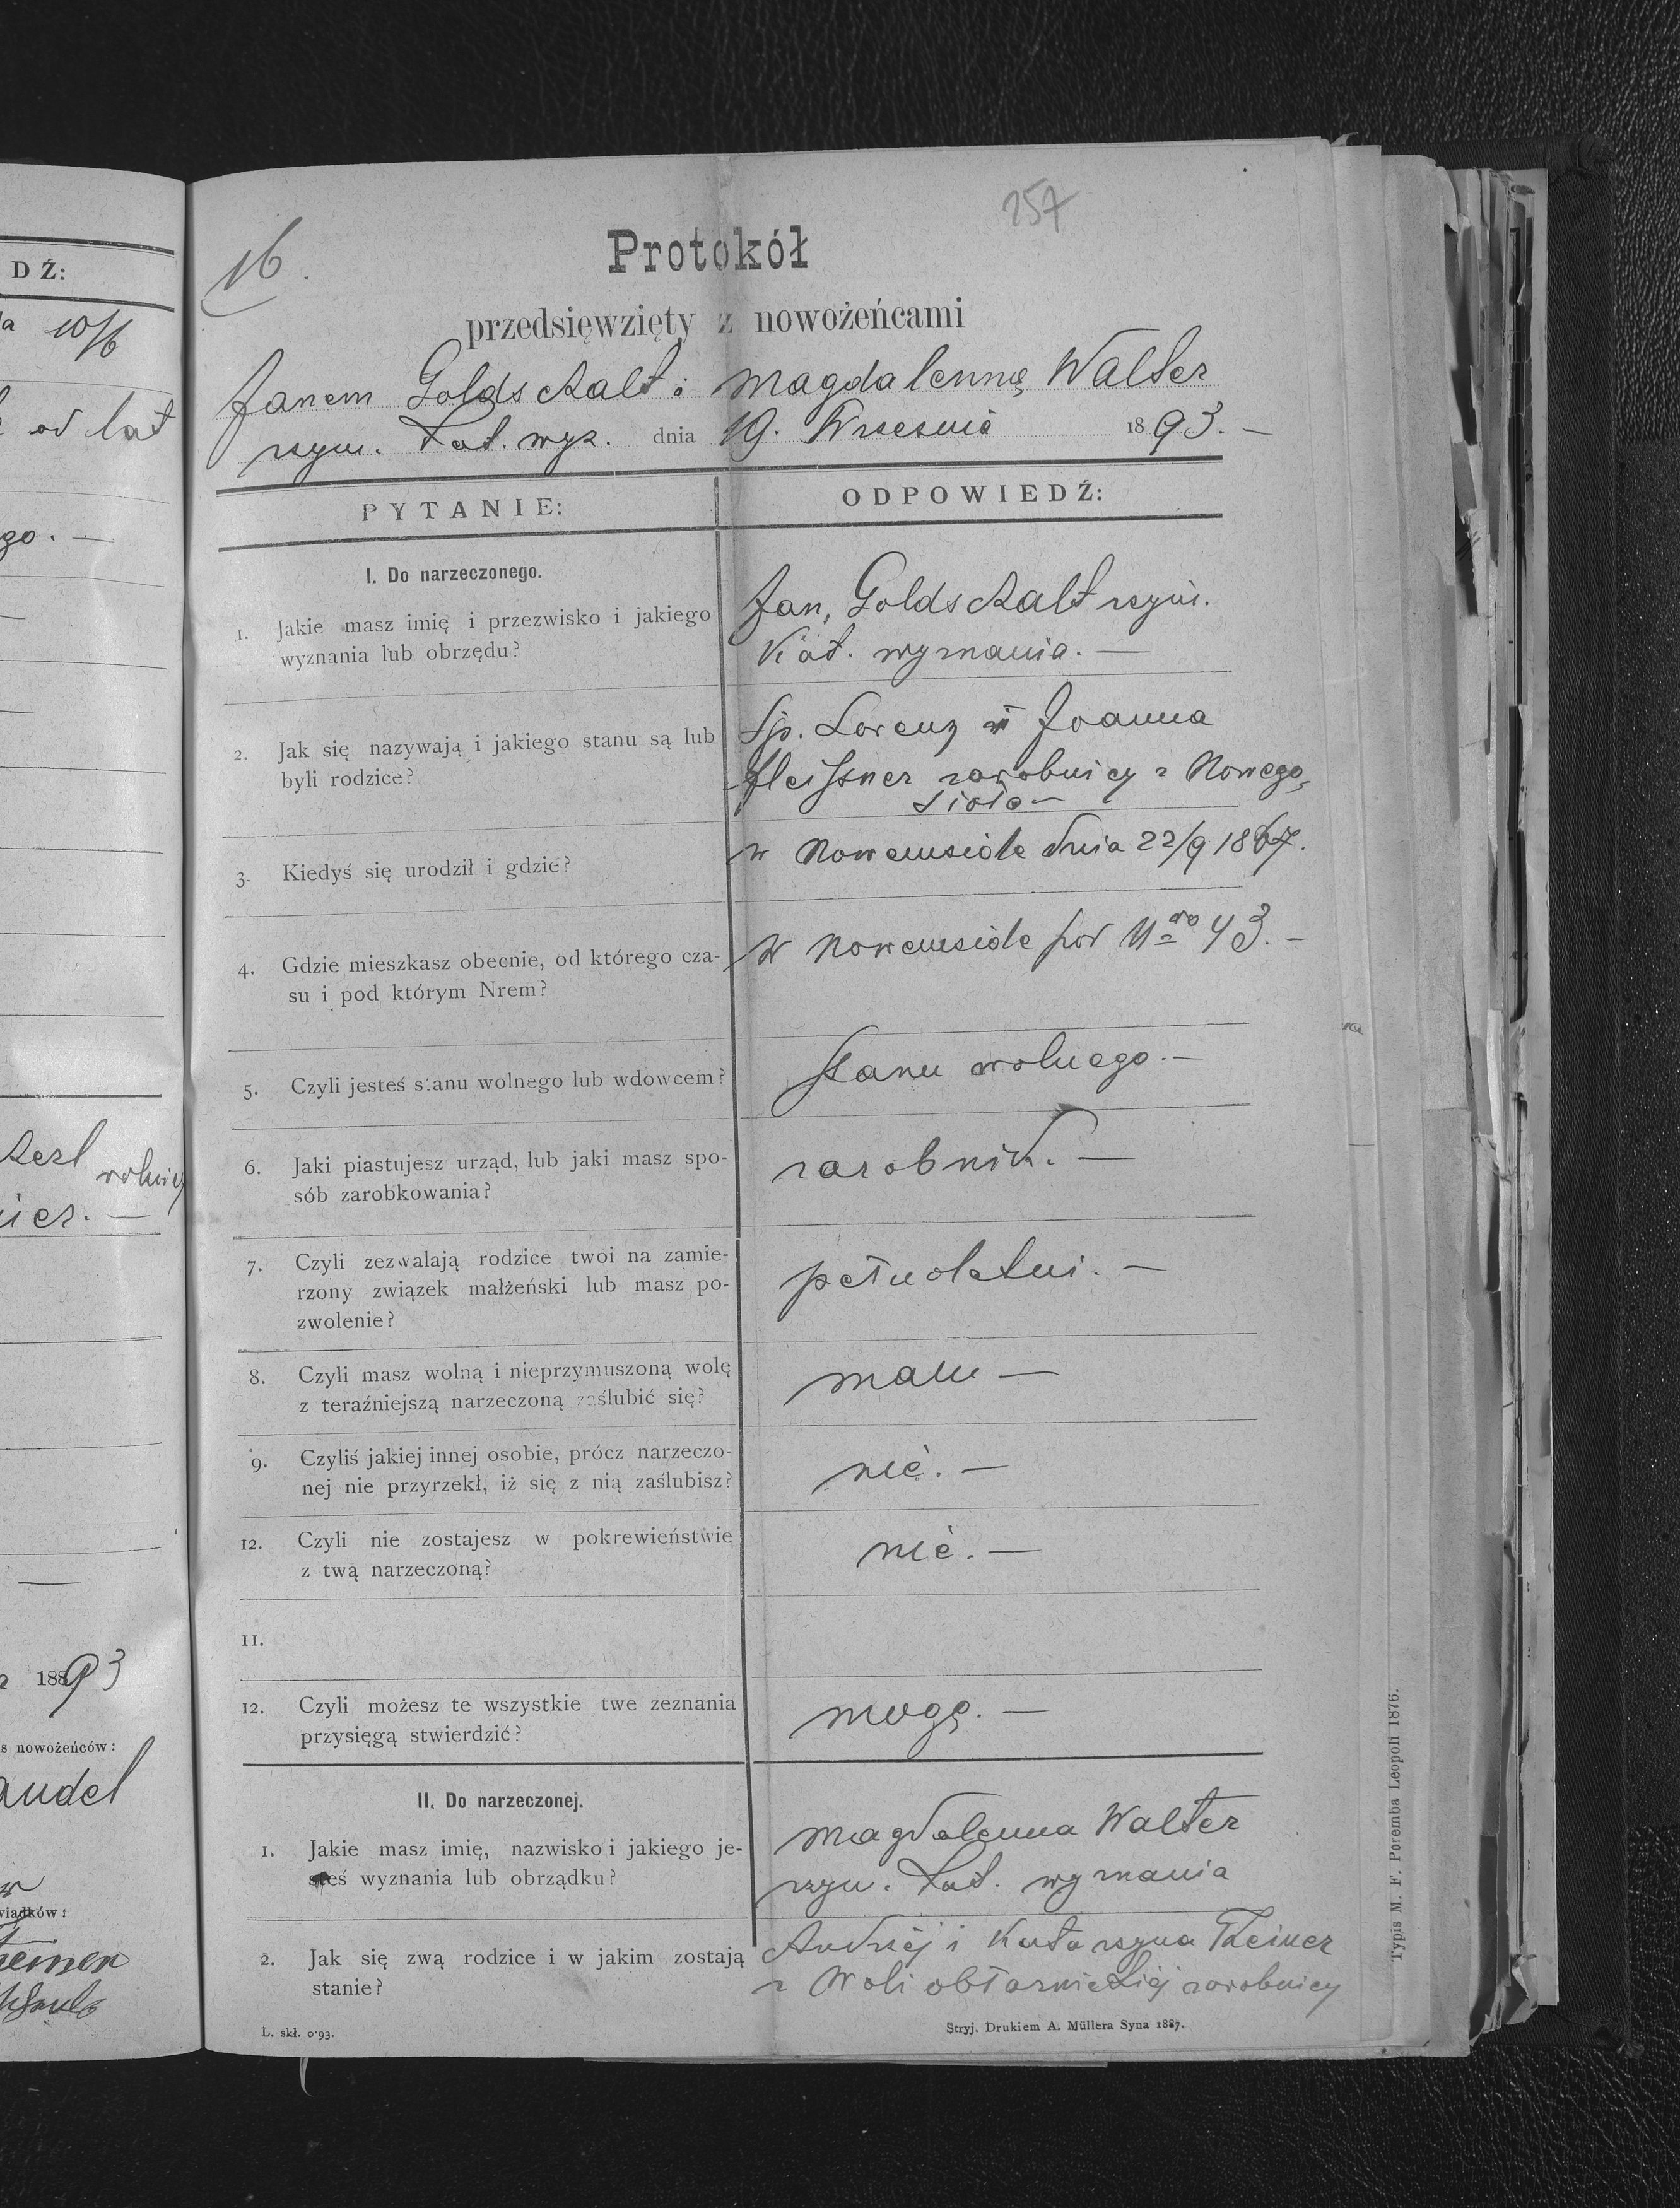 257
16.
Protokół
przedsięwzięty z nowożeńcami
Janem Goldschalt i Magdalenną Walter
rzym. kat. wyz. dnia 19. Września 1893. —
PYTANIE:
ODPOWIEDŹ:
I. Do narzeczonego.
1. Jakie masz imię i przezwisko i jakiego
wyznania lub obrzędu?
Jan, Goldschalt rzym.
Kat. wyznania. —
2. Jak się nazywają i jakiego stanu są lub
byli rodzice?
Śp. Lorenz i Joanna
zarobnicy z Nowego
Sioła —
3. Kiedyś się urodził i gdzie?
w Nowemsiole dnia 22/9 1867.
4. Gdzie mieszkasz obecnie, od którego cza-
su i pod którym Nrem?
W Nowemsiole pod Nro 43. —
5. Czyli jesteś stanu wolnego lub wdowcem?
stanu wolnego. —
6. Jaki piastujesz urząd, lub jaki masz spo-
sób zarobkowania?
zarobnik. —
7. Czyli zezwalają rodzice twoi na zamie-
rzony związek małżeński lub masz po-
zwolenie?
pełnoletni. —
8. Czyli masz wolną i nieprzymuszoną wolę
z teraźniejszą narzeczoną zaślubić się?
mam —
9. Czyliś jakiej innej osobie, prócz narzeczo-
nej nie przyrzekł, iż się z nią zaślubisz?
nie. —
12. Czyli nie zostajesz w pokrewieństwie
z twą narzeczoną?
nie. —
11.
12. Czyli możesz te wszystkie twe zeznania
przysięgą stwierdzić?
mogę. —
II. Do narzeczonej.
1. Jakie masz imię, nazwisko i jakiego je-
steś wyznania lub obrządku?
Magdalenna Walter
rzym. kat. wyznania
2. Jak się zwą rodzice i w jakim zostają
stanie?
Andrzej i Katarzyna
z Woli obłaznickiej zarobnicy
L. skł. 0·93.
Stryj. Drukiem A. Müllera Syna 1887.
Typis M. F. Poremba Leopoli 1876.
DŹ:
10/6
od lat
go. —
1893
s nowożeńców: